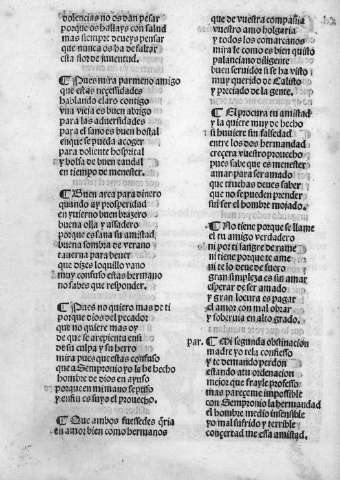 dolencias no os dan pesar
porque os hallays con salud
mas siempre deueys pensar
que nunca os ha de faltar
esta flor de juuentud.
¶ Pues mira parmeno amigo
que estas necessidades
hablando claro contigo
vna vieja es buen abrigo
para las aduersidades
para el sano es buen hostal
en que se pueda acoger
para doliente hospital
y bolsa de buen caudal
en tiempo de menester.
¶ Buen arca para dinero
quando ay prosperidad
en ynuierno buen brasero
buena olla y assadero
porque es sana su amistad
buena sombra de verano
tauerna para beuer
que dizes loquillo vano
muy confuso estas hermano
no sabes que responder.
¶ Pues no quiero mas de ti
porque dios del pecador
que no quiere mas oy
de que se arrepienta en si
de su culpa y su herro
mira pues que estas confuso
que a Sempronio yo le he hecho
hombre de dios en ayuso
porque en mi mano se puso
y en fin es suyo el prouecho.
¶ Que ambos fuessedes q̃ria
en amor bien como hermanos
que de vuestra compañia
vuestro amo holgaria
y todos los comarcanos
mira le como es bien quisto
palanciano diligente
buen seruidor si se ha visto
muy querido de Calisto
y preciado de la gente.
¶ El procura tu amistad
y la quiere muy de hecho
si huuiere sin falsedad
entre los dos hermandad
crecera vuestro prouecho
pues sabe que es menester
amar para ser amado
que truchas deues saber
que no se pueden prender
sin ser el hombre mojado.
¶ No tiene porque se llame
el tu amigo verdadero
ni por ti sangre derame
ni tiene porque te ame
ni te lo deue de fuero
gran simpleza es sin amar
esperar de ser amado
y gran locura es pagar
el amor con mal obrar
y soberuia en alto grado.
par. ¶ Mi segunda obstinacion
madre yo te la confiesso
y te demando perdon
estando a tu ordenacion
mejor que frayle professo
mas pareceme impossible
con Sempronio la hermandad
el hombre medio insensible
yo mal sufrido y terrible
concertad me essa amistad.